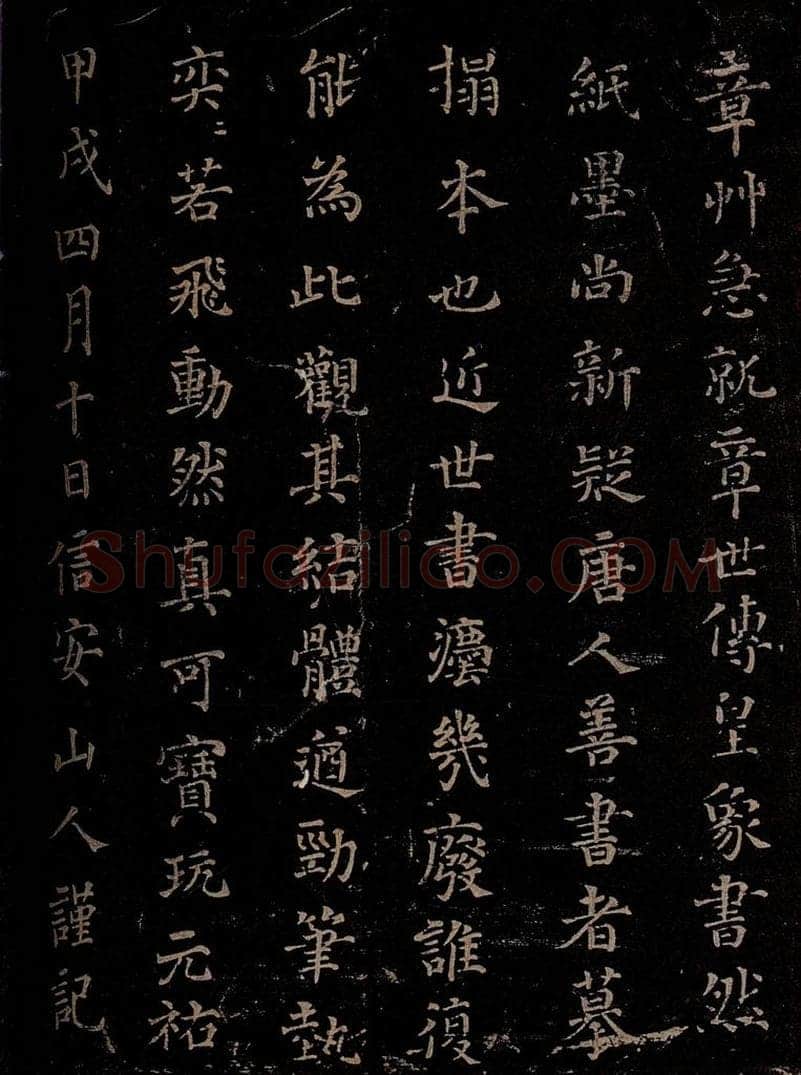 章艸急就章世傳皇象書然
紙墨尚新疑唐人善書者墓
搨本也近世書灋幾廢誰復
能為此觀其結體遒勁筆埶
奕〻若飛動然真可寶玩元祐
甲戌四月十日信安山人謹記
Shufaziliao.COM